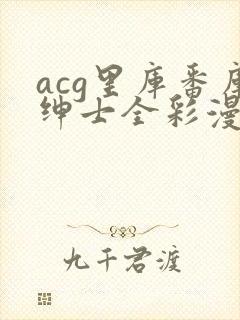 acg里库番库
绅士全彩漫
九千君渡